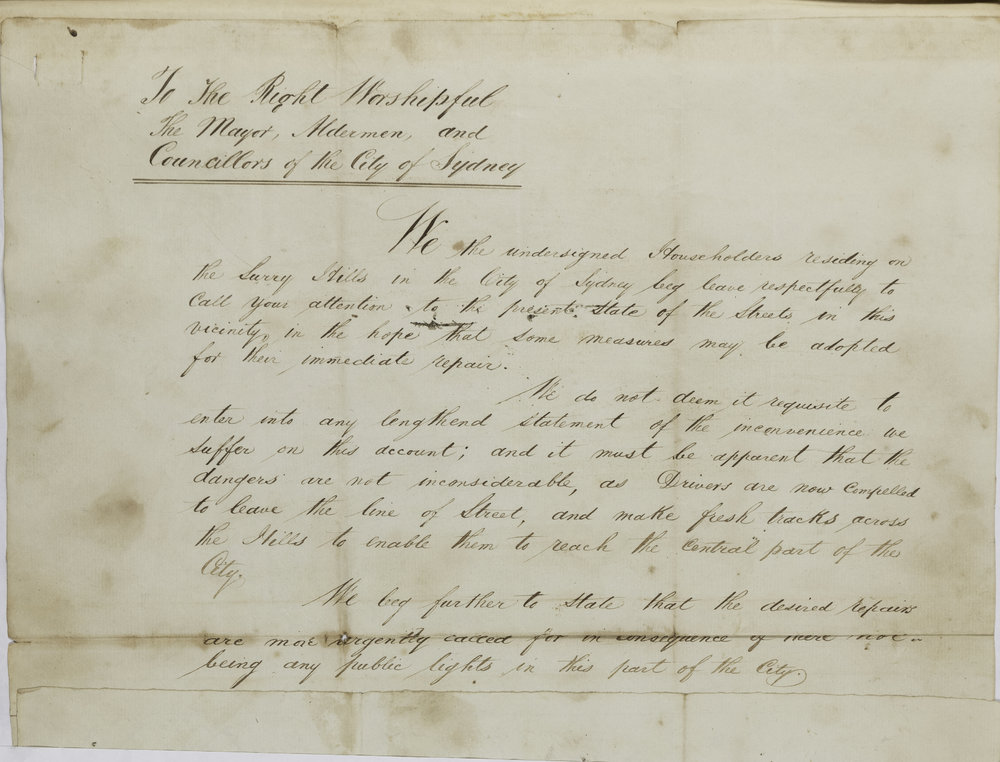 To The Right Worshipful
The Mayor, Aldermen, and
Councillors of the City of Sydney
We the undersigned Householders residing on
the Surry Hills in the City of Sydney beg leave respectfully to
call your attention to the present State of the Streets in this
vicinity, in the hope that some measures may be adopted
for their immediate repair.
We do not deem it requisite to
enter into any lengthend statement of the inconvenience we
suffer on this account; and it must be apparent that the
dangers are not inconsiderable, as Drivers are now compelled
to leave the line of Street, and make fresh tracks across
the Hills to enable them to reach the Central part of the
City.
We beg further to state that the desired repairs
are more urgently called for in consequence of there not
being any public lights in this part of the City.